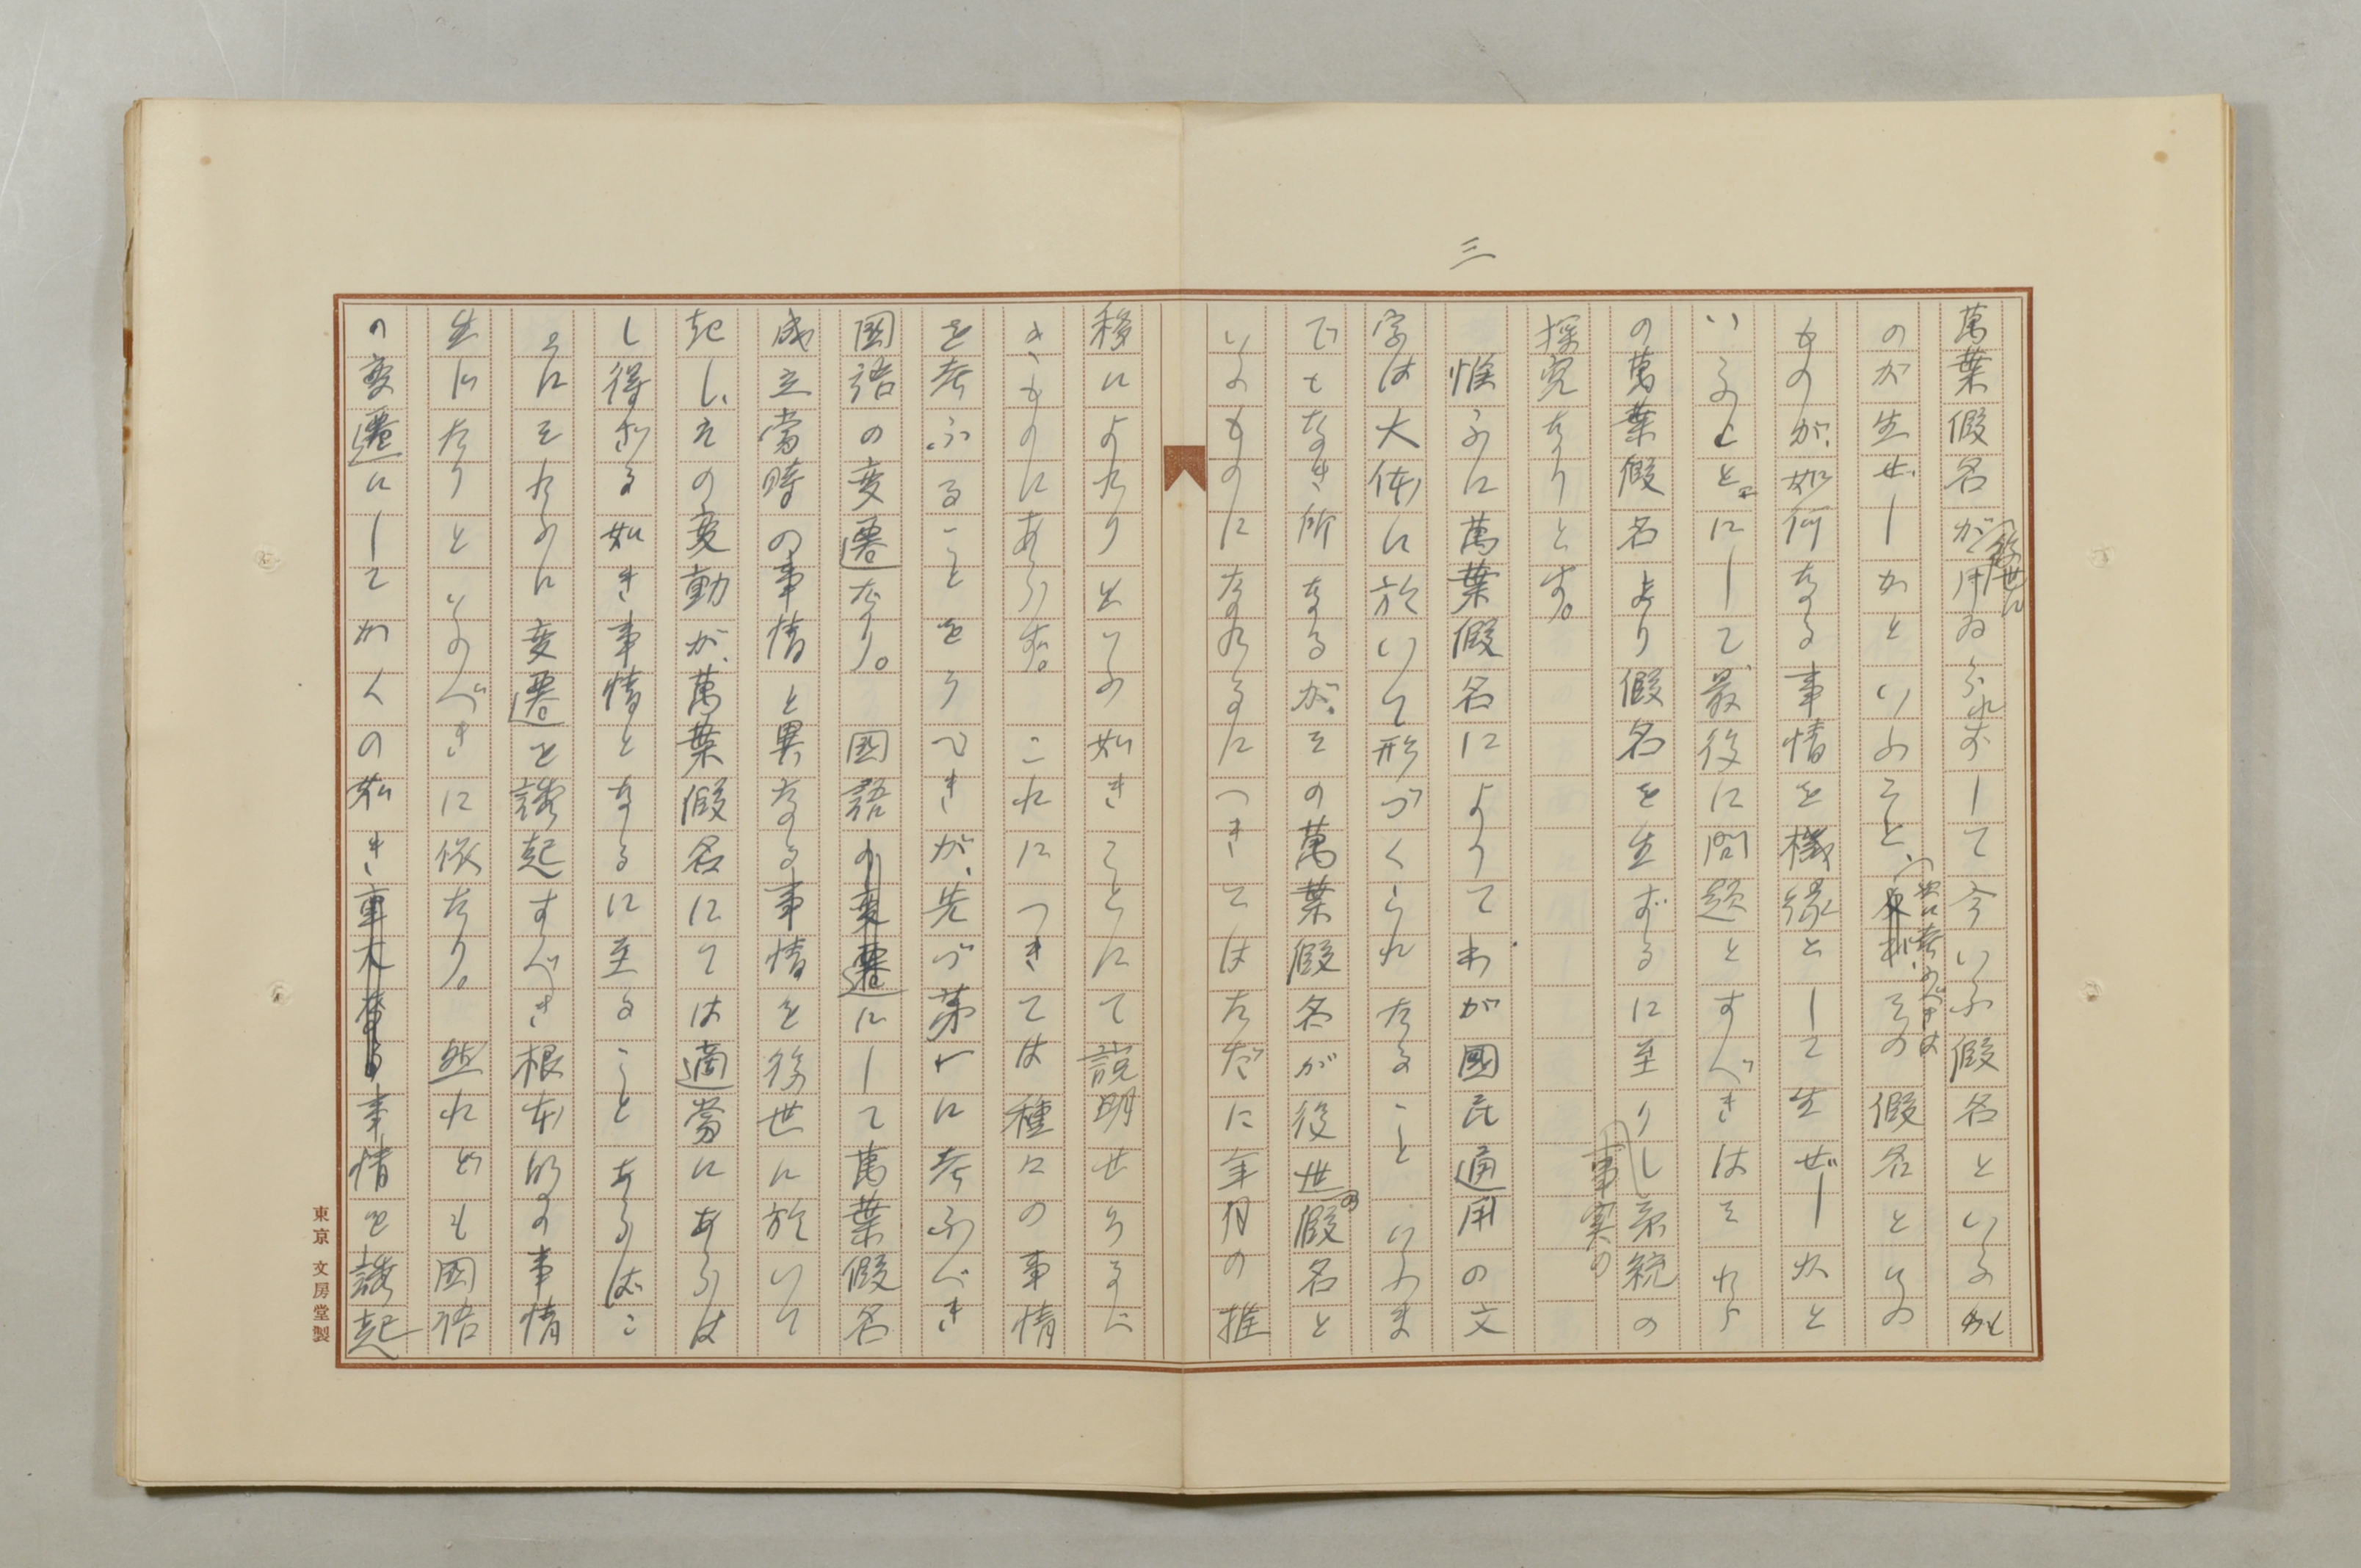 三
萬葉假名が後世に用ゐられずして今いふ假名といふも
のが生ぜしかといふこと、次に考ふべきはその假名といふ
ものが、如何なる事情を機縁として生ぜしかと
いふことにして最後に問題とすべきはそれら
の萬葉假名より假名を生ずるに至りし事実の系統の
探究なりとす。
惟ふに萬葉假名によりてわが國民通用の文
字は大体に於いて形づくられたることいふま
でもなき所なるが、その萬葉假名が後世の假名と
いふものになれるにつきてはただに年月の推
移によれりといふ如きことにて説明せらるべ
きものにあらず。これにつきては種々の事情
を考ふることをうべきが、先づ第一に考ふべき
國語の変遷なり。國語の変遷にして萬葉假名
成立当時の事情と異なる事情を後世に於いて
起し、その変動が、萬葉假名にては適當にあらは
し得ざる如き事情となるに至ることあらばこ
ゝにそれらに変遷を誘起すべき根本的の事情
生じたりといふべきに似たり。然れども國語
の変遷にしてかくの如き重大なる事情を誘起
東京 文房堂製